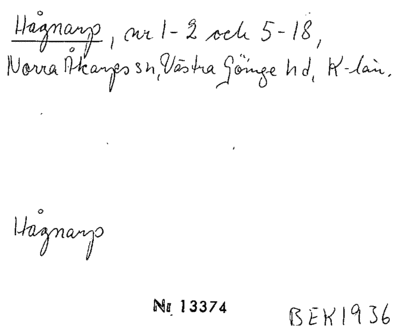 Hågnarp, nr 1-2 och 5-18,
Norra Åkarps sn, Västra Göinge hd, K-län.
Hågnarp
Nr 13374
BEK1936